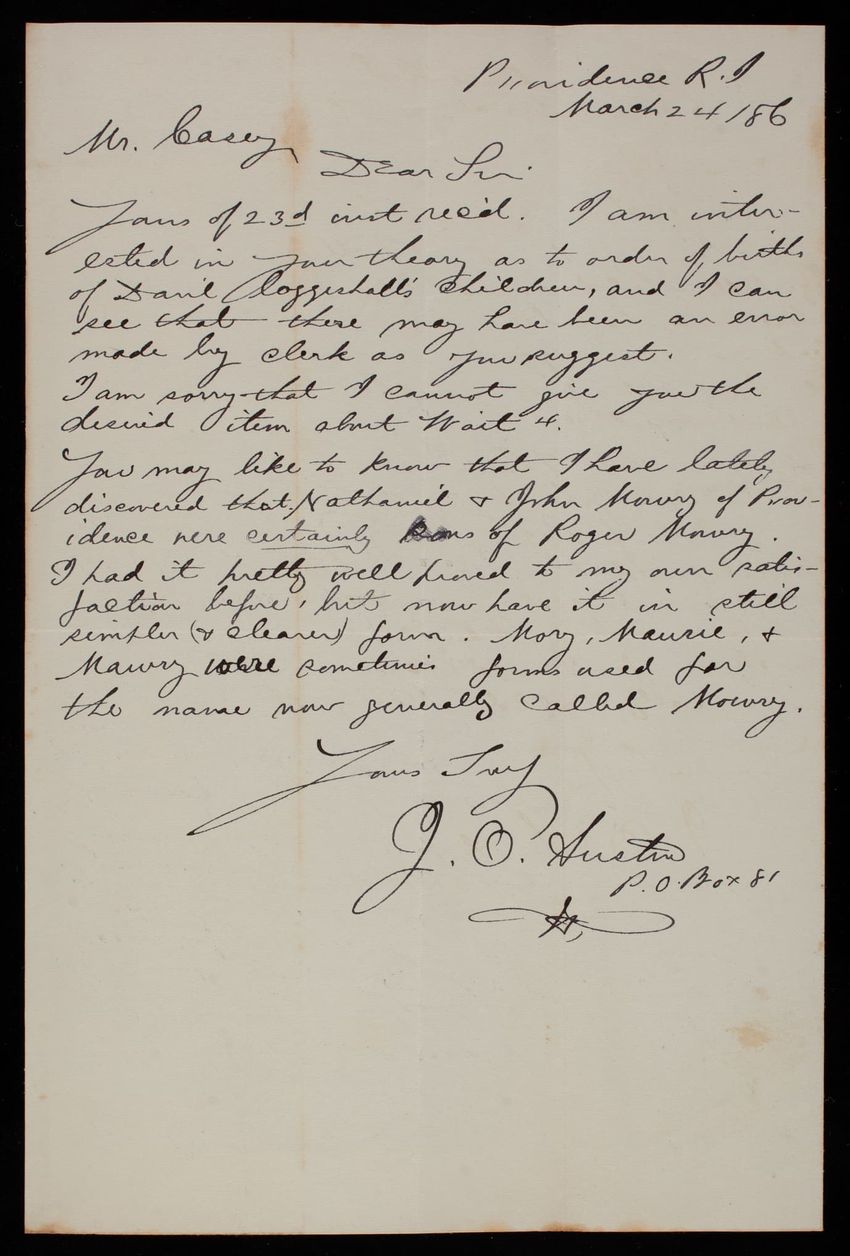 Providence R.I
March 24 /86
Mr. Casey,
Dear Sir.
Yours of 23d inst rec'd. I am inter-
ested in your theory as to order of births
of Danil Coggeshall's children, and I can
see that there may have been an error
made by clerk as you suggest.
I am sorry that I cannot give you the
desired item about Wait 4.
You may like to know that I have lately
discovered that Nathaniel & John Mowry of Prov-
idence were certainly sons of Roger Mowry.
I had it pretty well proved to my own satis-
faction before, but now have it in still
simpler (& clearer) form. Mory, Maurie, &
Mawry were sometimes forms used for
the name now generally called Mowry.
Yours Truly
J. O. Austin
P.O. Box 81